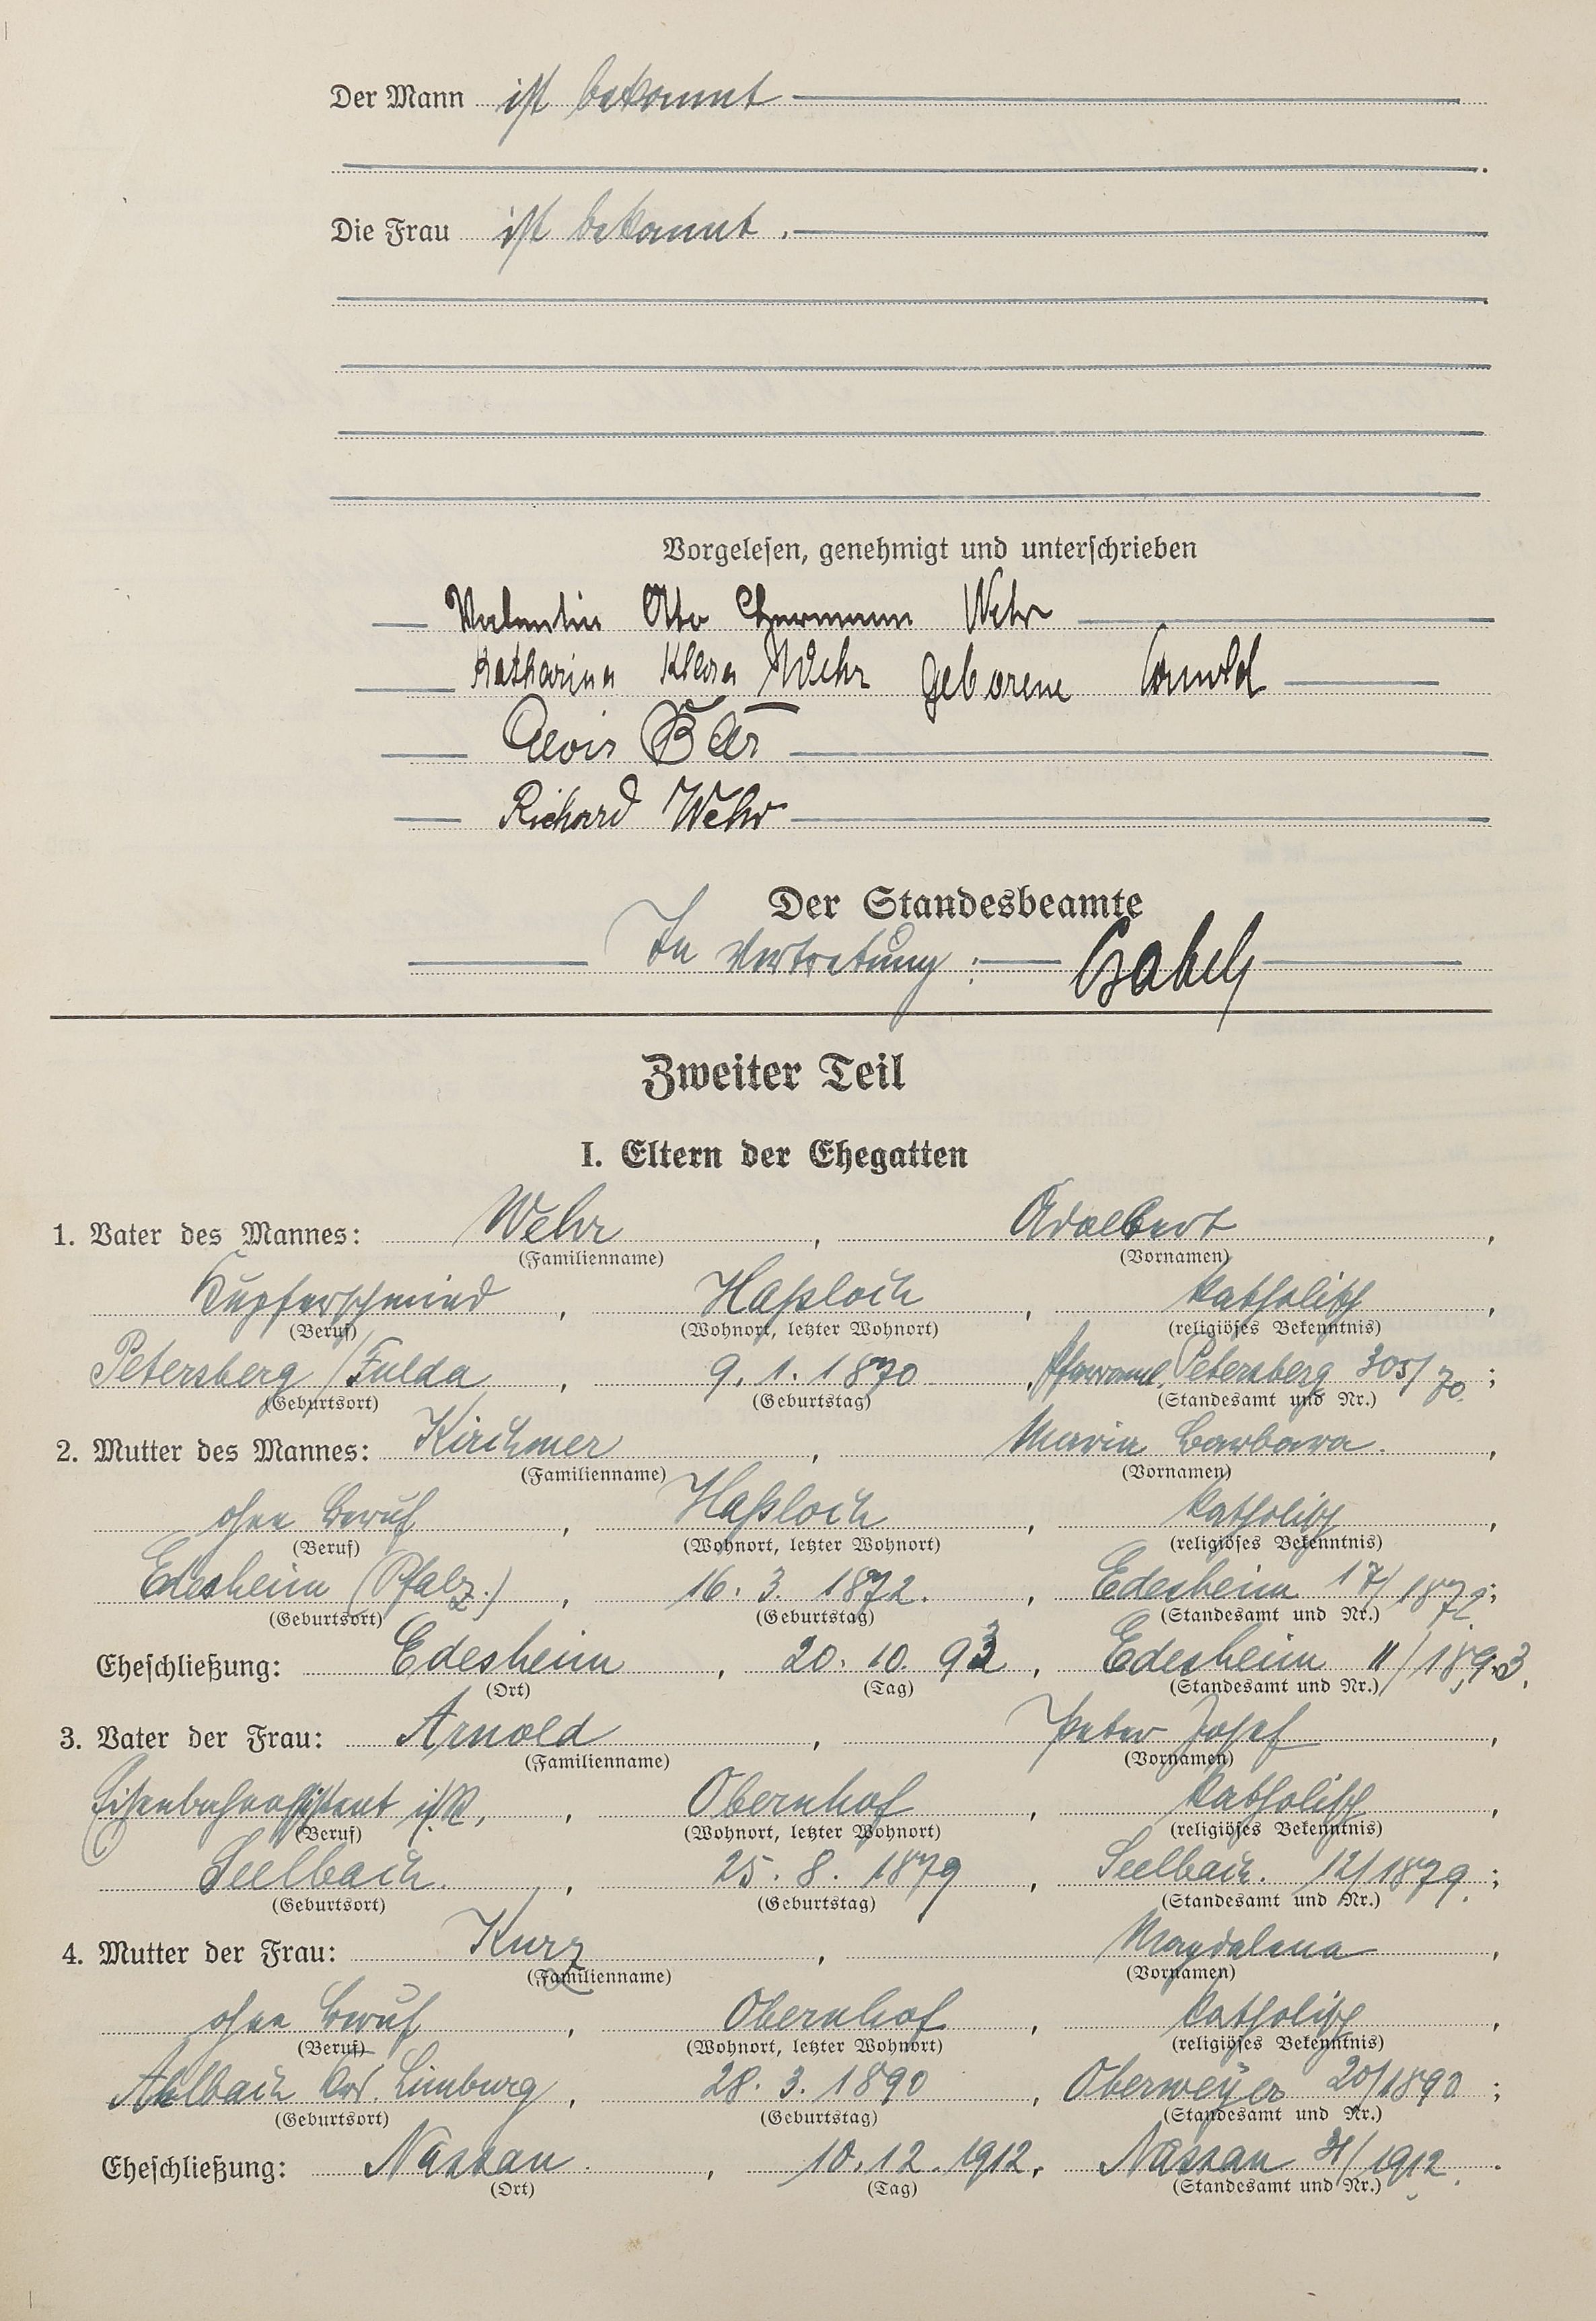 Der Mann ist bekannt
Die Frau ist bekannt.
Vorgelesen, genehmigt und unterschrieben
Valentin Otto Hermann Wehr
Katharina Klara Wehr geborene Arnold
Alois Bär
Richard Wehr
Der Standesbeamte
In Vertretung:
Zweiter Teil
I. Eltern der Ehegatten
1. Vater des Mannes: Wehr, Adalbert,
(Familienname) (Vornamen)
Kupferschmied, Haßloch, katholisch,
(Beruf) (Wohnort, letzter Wohnort) (religiöses Bekenntnis)
Petersberg/Fulda, 9.1.1870, Pfarramt Petersberg 305/70;
(Geburtsort) (Geburtstag) (Standesamt und Nr.)
2. Mutter des Mannes: Kirchmer, Maria Barbara.,
(Familienname) (Vornamen)
ohne Beruf, Haßloch, katholisch,
(Beruf) (Wohnort, letzter Wohnort) (religiöses Bekenntnis)
Edesheim (Pfalz.), 16.3.1872., Edesheim 17/1872;
(Geburtsort) (Geburtstag) (Standesamt und Nr.)
Eheschließung: Edesheim, 20.10.93, Edesheim 11/1893.
(Ort) (Tag) (Standesamt und Nr.)
3. Vater der Frau: Arnold, Peter Josef,
(Familienname) (Vornamen)
Eisenbahnassistent i/R., Obernhof, katholisch,
(Beruf) (Wohnort, letzter Wohnort) (religiöses Bekenntnis)
Seelbach., 25.8.1879, Seelbach. 12/1879;
(Geburtsort) (Geburtstag) (Standesamt und Nr.)
4. Mutter der Frau: Kurz, Magdalena,
(Familienname) (Vornamen)
ohne Beruf, Obernhof, katholisch,
(Beruf) (Wohnort, letzter Wohnort) (religiöses Bekenntnis)
Ahlbach Krs. Limburg, 28.3.1890, Oberweyer 20/1890;
(Geburtsort) (Geburtstag) (Standesamt und Nr.)
Eheschließung: Nassau., 10.12.1912, Nassau /1912.
(Ort) (Tag) (Standesamt und Nr.)